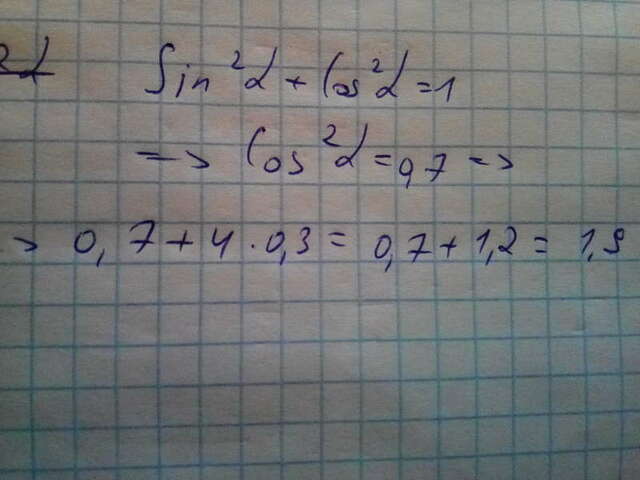 2α Sin²α + Cos²α = 1
=> Cos²α = 0,7 =>
> 0,7 + 4 · 0,3 = 0,7 + 1,2 = 1,9